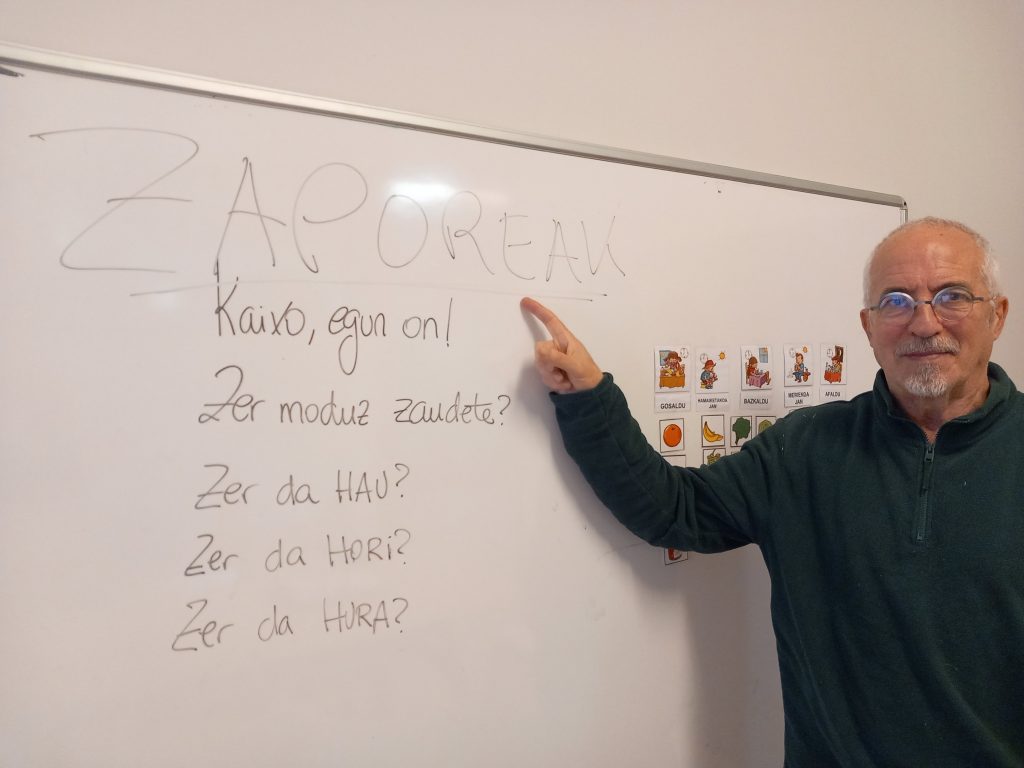 ZAPOREAK
Kaixo, egun on!
Zer moduz zaudete?
Zer da HAU?
Zer da HORi?
Zer da HURA?
GOSALDU
HAMAIKETAKOA JAN
BAZKALDU
MERIENDA JAN
AFALDU